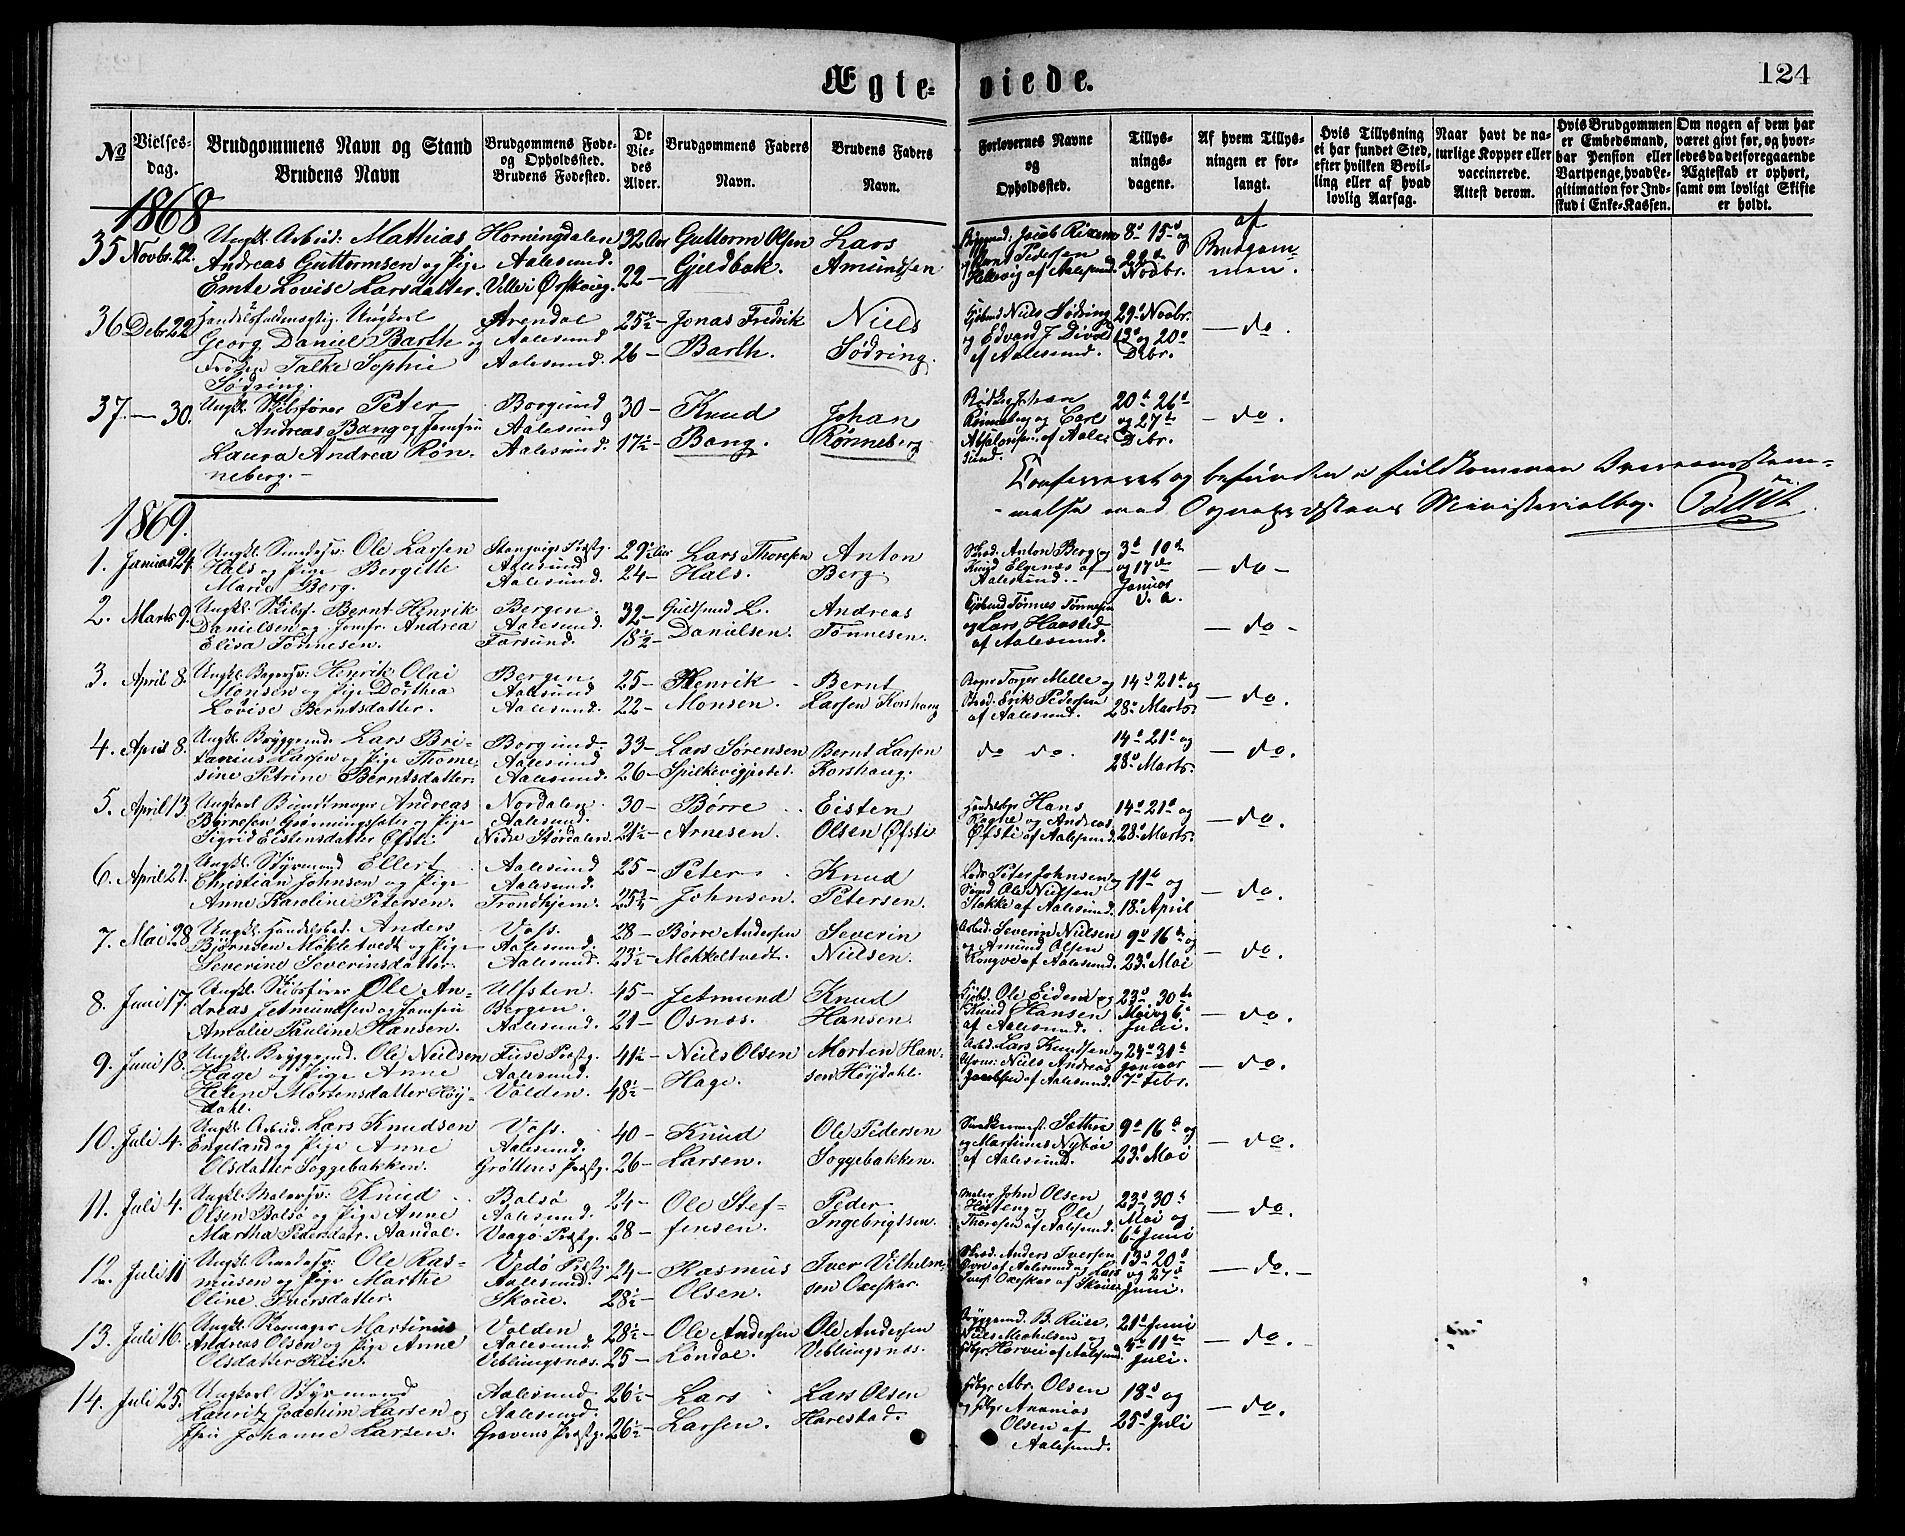 Ægte-
viede.
124
No
Vielses-
dag.
Brudgommens Navn og Stand
Brudens Navn
Brudgommens Fode-
og Opholdssted.
Brudens Fodested.
De
Vie-
des
Alder.
Brudgommens Faders
Navn.
Brudens Faders
Navn.
Forlovernes Navne
og
Opholdssted.
Tillys-
nings-
dagene.
Af hvem Tillys-
ningen er for-
langt.
Hvis Tillysning
ei har fundet Sted,
efter hvilken Bevil-
ling eller af hvad
lovlig Aarsag.
Naar havt de na-
turlige Kopper eller
vaccinerede.
Attest derom.
Hvis Brudgommen
er Embedsmand,
har Pension eller
Vartpenge, hvad Le-
gitimation for Ind-
skud i Enke-Kassen.
Om nogen af dem har
været givt før, og hvor-
ledes da det foregaaende
Ægteskab er ophørt,
samt om lovligt Skifte
er holdt.
1868
35 Novbr. 22. Ungk. Arbeid: Mathias
Andreas Guttormsen og Pige
Emte Lovise Larsdatter.
Horningdalen
Aalesund.
Ville i Ørskoug.
32 Aar
22 —
Guttorm Olsen
Gjeldbak.
Lars
Amundsen
Jacob
Pedersen
af Aalesund
8de 15de og
22de
Novbr.
af
Brudgom-
men.
36 Debr. 22 Handelsfuldmægtig. Ungkarl
Georg Daniel Barth og
Frøken Talke Sophie
Sødring.
Arendal
Aalesund
Aalesund.
25½ —
26 —
Jonas Fredrik
Barth.
Niels
Sødring.
Niels Sødring
og Edvard J. Devold
af Aalesund.
29de Novbr.
13de og 20de
Debr.
— do.
37. — 30. Ungk. Skibsfører Peter
Andreas Bang og Jomfru
Laura Andrea Røn-
neberg. —
Borgund
Aalesund
Aalesund.
30 —
17½ —
Knud
Bang.
Johan
Rønneberg
Johan
Rønneberg og Carl
Absalonsen af Aale-
sund.
20de 26de
og 27de
Debr.
— do.
Confereret og befunden i fuldkommen Overensstem-
melse med Sognepræstens Ministerialbog.
1869.
1. Januar 24. Ungk. Smedesv: Ole Larsen
Hals og Pige Bergitte
Marie Berg.
Stangvigs Præstg.
Aalesund
Aalesund.
29½ Aar
24 —
Lars Thoresen
Hals.
Anton
Berg
Anton Berg og
Knud Elgenæs af
Aalesund. —
3de 10de
og 17de
Januar
d. a.
— do —
2. Marts 9. Ungk. Skibsf. Bernt Henrik
Danielsen og Jomfr. Andrea
Elisa Tønnesen.
Bergen.
Aalesund.
Farsund.
32 —
18½ —
Guldsmed L.
Danielsen.
Andreas
Tønnesen.
Tønnes Tønnesen
og Lars Haustad
af Aalesund.
— do —
3. April 8. Ungk. Bagersv: Henrik Olai
Monsen og Pige Dorthea
Lovise Berntsdatter.
Bergen
Aalesund
Aalesund.
25 —
22 —
Henrik
Monsen.
Bernt
Larsen Korshaug
Torger Melle og
Erik Pedersen
af Aalesund.
14de 21de og
28de Marts.
— do.
4. April 8. Ungk. Bryggemd. Lars Bri-
tanius Larsen og Pige Thome-
sine Petrine Berntsdatter.
Borgund.
Aalesund
Aalesund.
33 —
26 —
Lars Sørensen
Spilkevigpedet.
Bernt Larsen
Korshaug.
do do.
14de 21de og
28de Marts.
— do.
5. April 13. Ungkarl Bundtmager Andreas
Børresen Grønningsæter og Pige
Sigrid Eistensdatter Øfsti.
Nordalen.
Aalesund.
Nedre Stordalen.
30 —
21½ —
Børre
Arnesen.
Eisten
Olsen Øfsti
Hans
Ragne og Andreas
Øfsti af Aalesund.
14de 21de og
28de Marts.
— do.
6. April 21. Ungk. Styrmand Ellert
Christian Johnsen og Pige
Anne Karoline Petersen.
Aalesund
Aalesund.
Trondhjem.
25 —
25¾
Peter
Johnsen.
Knud
Petersen.
Lods Peter Johnsen og
Ole Nielsen
Slokke af Aalesund.
11te og
18de April
— do.
7. Mai 28. Ungk. Handelsbet. Anders
Bjørnsen Møkletvedt og Pige
Severine Severinsdatter.
Voss.
Aalesund.
Aalesund.
28 —
23½ —
Børre Andersen
Mekkeltvedt.
Severin
Nielsen.
Arbd. Severin Nielsen
og Amund Olsen
Rongve af Aalesund.
9de 16de og
23de Mai
— do.
8. Juni 17. Ungk. Skibsfører Ole An-
dreas Jetmundsen og Jomfru
Amalie Pauline Hansen.
Ulfsten.
Bergen.
Aalesund.
45 —
21 —
Jetmund
Osnæs.
Knud
Hansen.
Ole Eidem og
Knud Hansen
af Aalesund.
23de, 30te
Mai og 6te
Juli.
— do.
9. Juni 18. Ungk. Bryggemd. Ole Nielsen
Hage og Pige Anne
Helene Mortensdatter Høy-
dahl.
Fuse Præstg.
Aalesund.
Volden.
41½ —
48½ —
Niels Olsen
Hage.
Morten Han-
sen Høydahl.
Arbd. Lars Knudsen og
Niels Andreas
Jacobsen af Aalesund.
24de 31te
Januar
7de Febr.
— do.
10. Juli 4. Ungk. Arbeid. Lars Knudsen
Engeland og Pige Anne
Olsdatter Soggebakken.
Voss.
Aalesund.
Grøttens Præstg.
40 —
26 —
Knud
Larsen.
Ole Pedersen
Soggebakken.
Sæther
og Martinus Nybøe
af Aalesund.
9de 16de og
23de Mai
— do.
11. Juli 4. Ungk. Malersv: Knud
Olsen Bolsø og Pige Anne
Martha Pedersdatr. Aandal.
Bolsø
Aalesund.
Vaagø Præstg.
24 —
28 —
Ole Stef-
fensen.
Peder
Ingebrigtsen.
Maler John Olsen
og Ole
Thoresen af Aalesund.
23de 30te
Mai og
6te Juni
— do.
12. Juli 11 Ungk. Smedesv: Ole Ras-
musen og Pige Marthe
Oline Iversdatter.
Vedø Præstg.
Aalesund.
Skoue.
24 —
28½ —
Rasmus
Olsen.
Iver Vilhelm-
sen Oxeskar.
Anders Iversen
af Aalesund og Lars
Oxeskar af Skoue.
13de 20de
og 27de
Juni.
— do. —
13. Juli 16. Ungk. Skomager Martinus
Andreas Olsen og Pige Anne
Olsdatter Riise.
Volden
Aalesund.
Veblungsnæs.
28½ —
25 —
Ole Andersen
Løndal.
Ole Andersen
Veblungsnæs.
Bryggemd. B. Riise,
og
af Aalesund.
21de Juni
4de 11te
Juli.
— do. —
14. Juli 25. Ungkarl Styrmand
Lauritz Joachim Larsen og
Johanne Larsen.
Aalesund.
Aalesund.
Gravens Præstg.
26½ —
26½ —
Lars
Larsen.
Lars Olsen
Harestad.
Abr. Olsen
og Ananias
Olsen af
Aalesund.
18de og
25de Juli
— do.